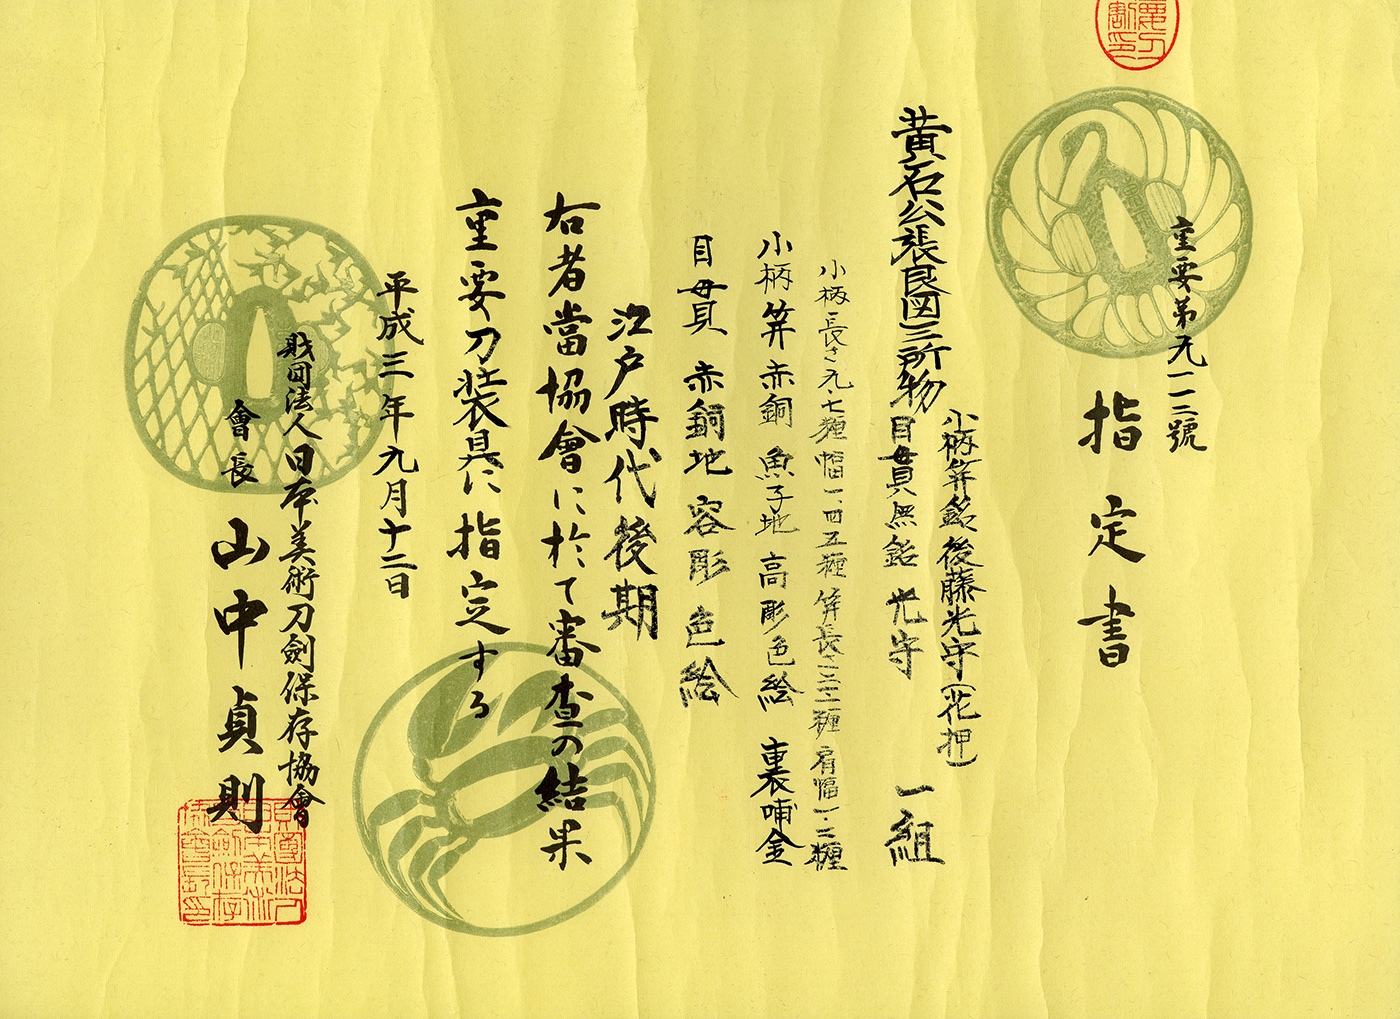 重要第九一二號
指定書
黄石公張良図三所物
小柄笄銘後藤光守(花押)
目貫無銘光守
一組
小柄長さ九・七糎幅一・四五糎笄長さ二三・二糎肩幅一・二糎
小柄笄赤銅魚子地高彫色絵裏哺金
目貫赤銅地容彫色絵
江戸時代後期
右者當協會に於て審査の結果
重要刀装具に指定する
平成三年九月十二日
財団法人日本美術刀劍保存協會
會長山中貞則